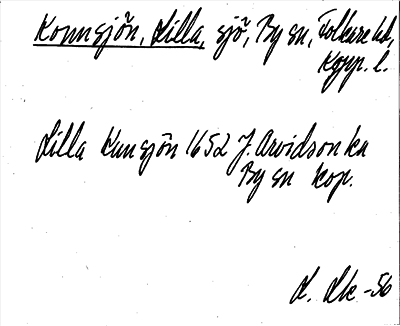 Konnsjön, Lilla, sjö, By sn, Folkare hd,
Kopp. l.
Lilla Kunsjön 1652 J. Arvidson ka
By sn kop.
L. Lk -56